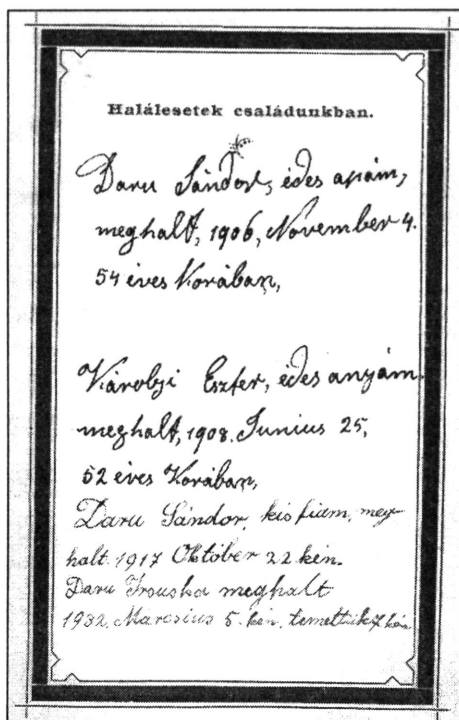 Halálesetek családunkban.
Daru Sándor, édes apám,
meghalt, 1906, November 4.
54 éves Korában,
Károlyi Eszter, édes anyám.
meghalt, 1908. Junius 25,
52 éves Korában,
Daru Sándor, kis fiam, meg
halt. 1917 Október 22 kén.
Daru Irouska meghalt
1932. Marcsius 5. kén. temettük